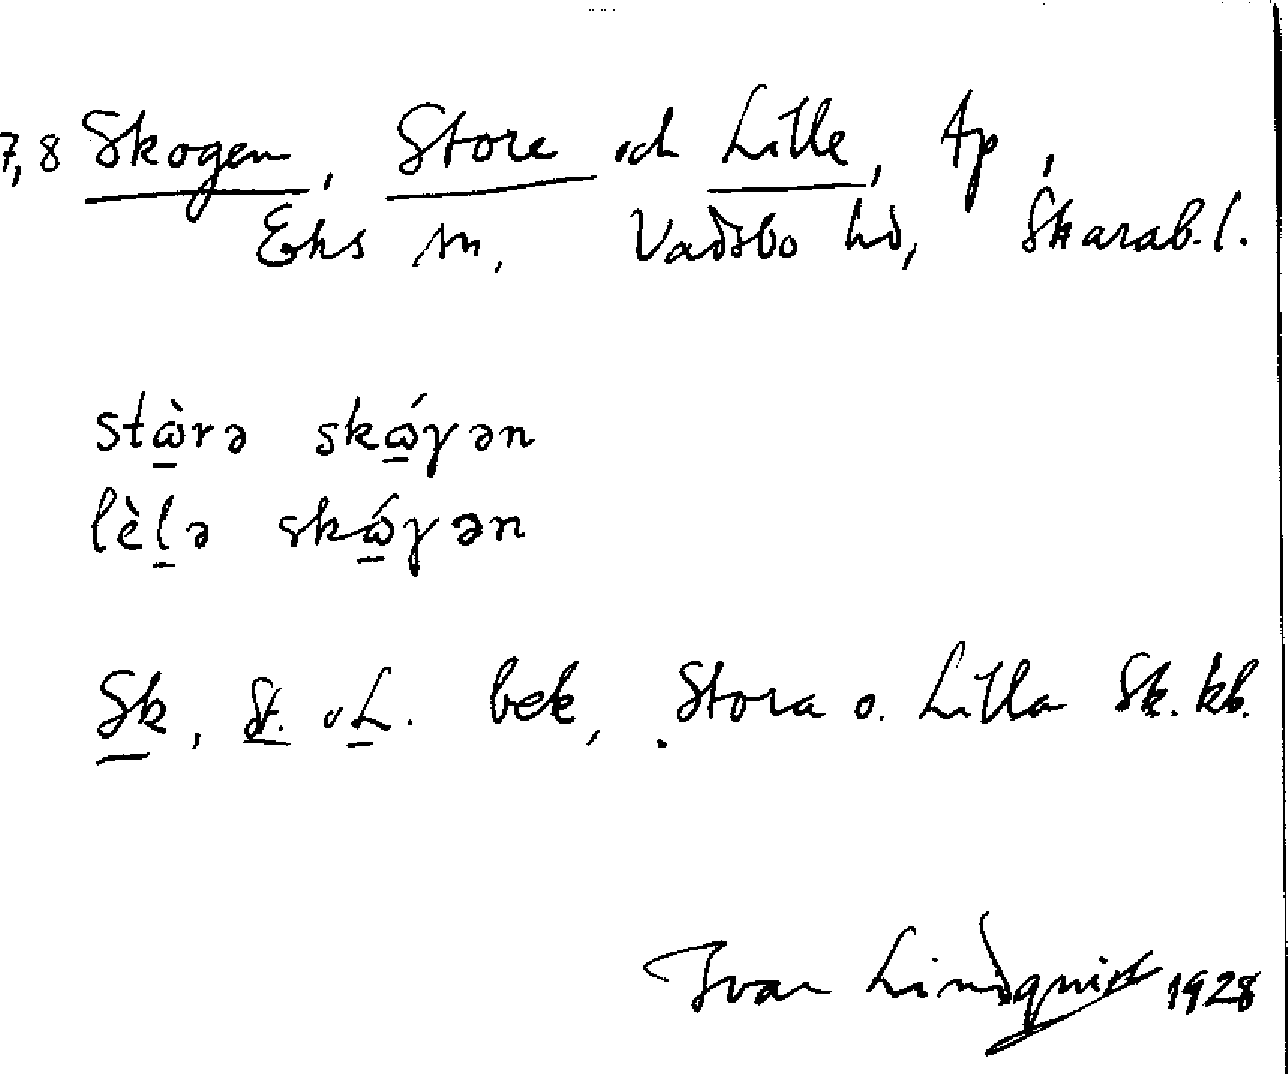 7,8 Skogen, Store och Lille, tp,
Eks sn, Vadsbo hd, Skarab. l.
stὼ̱rə skώ̱γən
lèḻə skώ̱γən
Sk, St. o L. bek, Stora o. Lilla Sk. kb.
Ivar Lindquist 1928